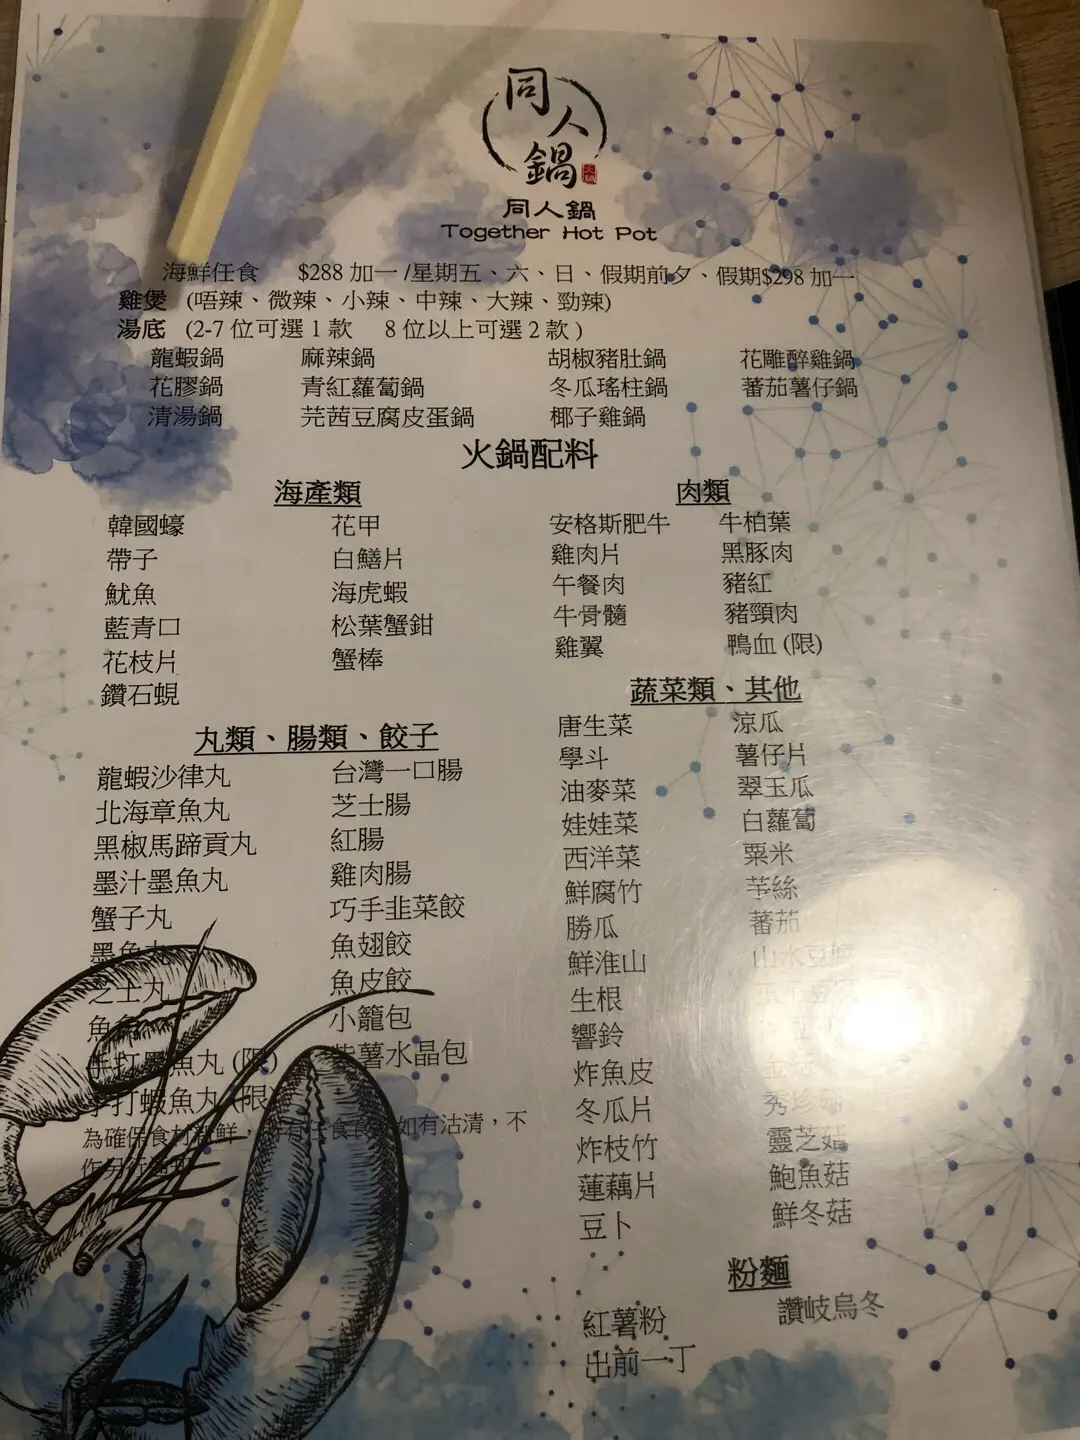 同人鍋
同人鍋
Together Hot Pot
海鮮任食 $288 加一 /星期五、六、日、假期前夕、假期$298 加一
雞煲 (唔辣、微辣、小辣、中辣、大辣、勁辣)
湯底 (2-7 位可選 1 款 8 位以上可選 2 款 )
龍蝦鍋 麻辣鍋 胡椒豬肚鍋 花雕醉雞鍋
花膠鍋 青紅蘿蔔鍋 冬瓜瑤柱鍋 蕃茄薯仔鍋
清湯鍋 芫茜豆腐皮蛋鍋 椰子雞鍋
火鍋配料
海產類
韓國蠔 花甲
帶子 白鱔片
魷魚 海虎蝦
藍青口 松葉蟹鉗
花枝片 蟹棒
鑽石蜆
丸類、腸類、餃子
龍蝦沙律丸 台灣一口腸
北海章魚丸 芝士腸
黑椒馬蹄貢丸 紅腸
墨汁墨魚丸 雞肉腸
蟹子丸 巧手韭菜餃
墨魚丸 魚翅餃
芝士丸 魚皮餃
魚 小籠包
手打墨魚丸 (限) 紫薯水晶包
手打蝦魚丸 (限)
為確保食材新鮮，所有任食食 如有沽清，不
作另行
肉類
安格斯肥牛 牛柏葉
雞肉片 黑豚肉
午餐肉 豬紅
牛骨髓 豬頸肉
雞翼 鴨血 (限)
蔬菜類、其他
唐生菜 涼瓜
學斗 薯仔片
油麥菜 翠玉瓜
娃娃菜 白蘿蔔
西洋菜 粟米
鮮腐竹 芋絲
勝瓜 蕃茄
鮮淮山 山水豆腐
生根 玉子豆
響鈴
炸魚皮 金菇
冬瓜片 秀珍菇
炸枝竹 靈芝菇
蓮藕片 鮑魚菇
豆卜 鮮冬菇
粉麵
紅薯粉 讚岐烏冬
出前一丁